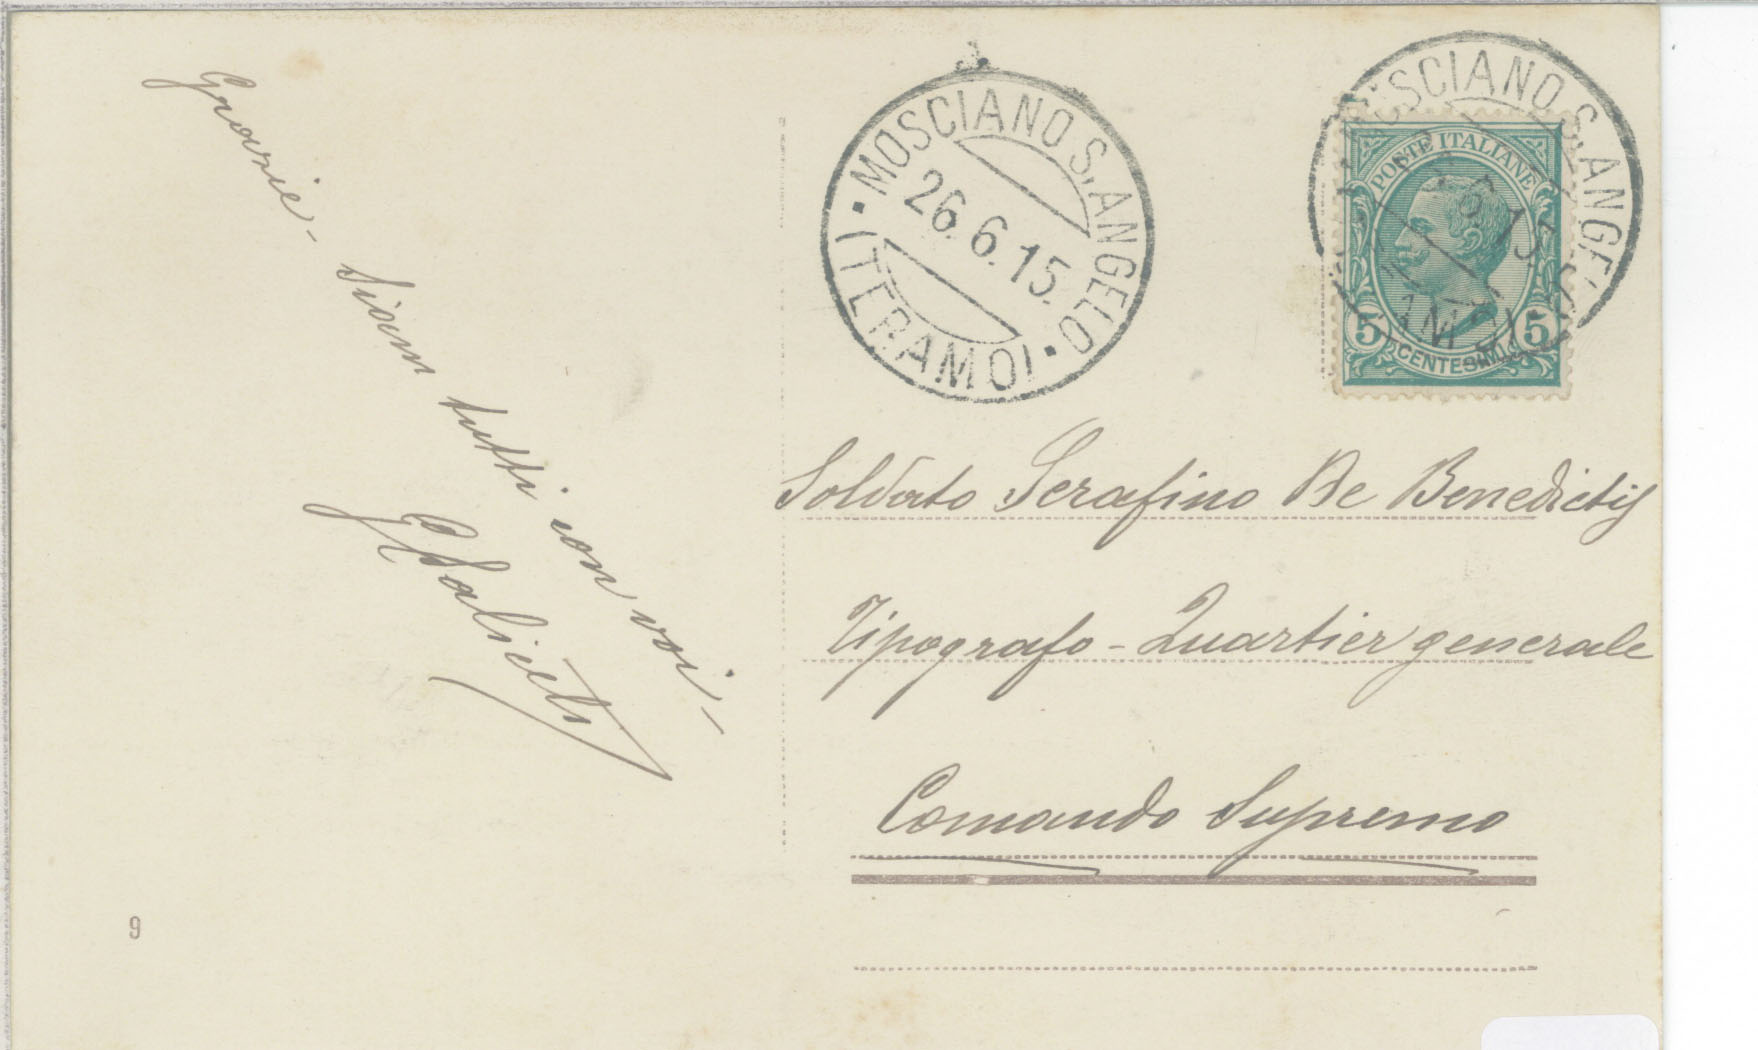 Grazie - Siam tutti con voi -
MOSCIANO S. ANGELO
26.6.15.
(TERAMO)
MOSCIANO S. ANGELO
6.15
POSTE ITALIANE
5 CENTESIMI 5
Soldato Serafino De Benedictis
Tipografo - Quartier generale
Comando Supremo
9